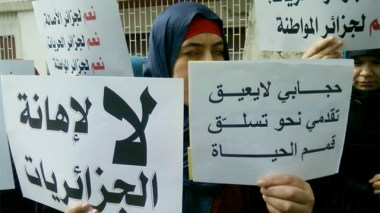 نعم لجزائر الأصالة
نعم لجزائر الحريات
نعم لجزائر
لجزائر المواطنة
لا
لإهانة
الجزائريات
حجابي لايعيق
تقدمي نحو تسلـّق
قمم الحيـاة